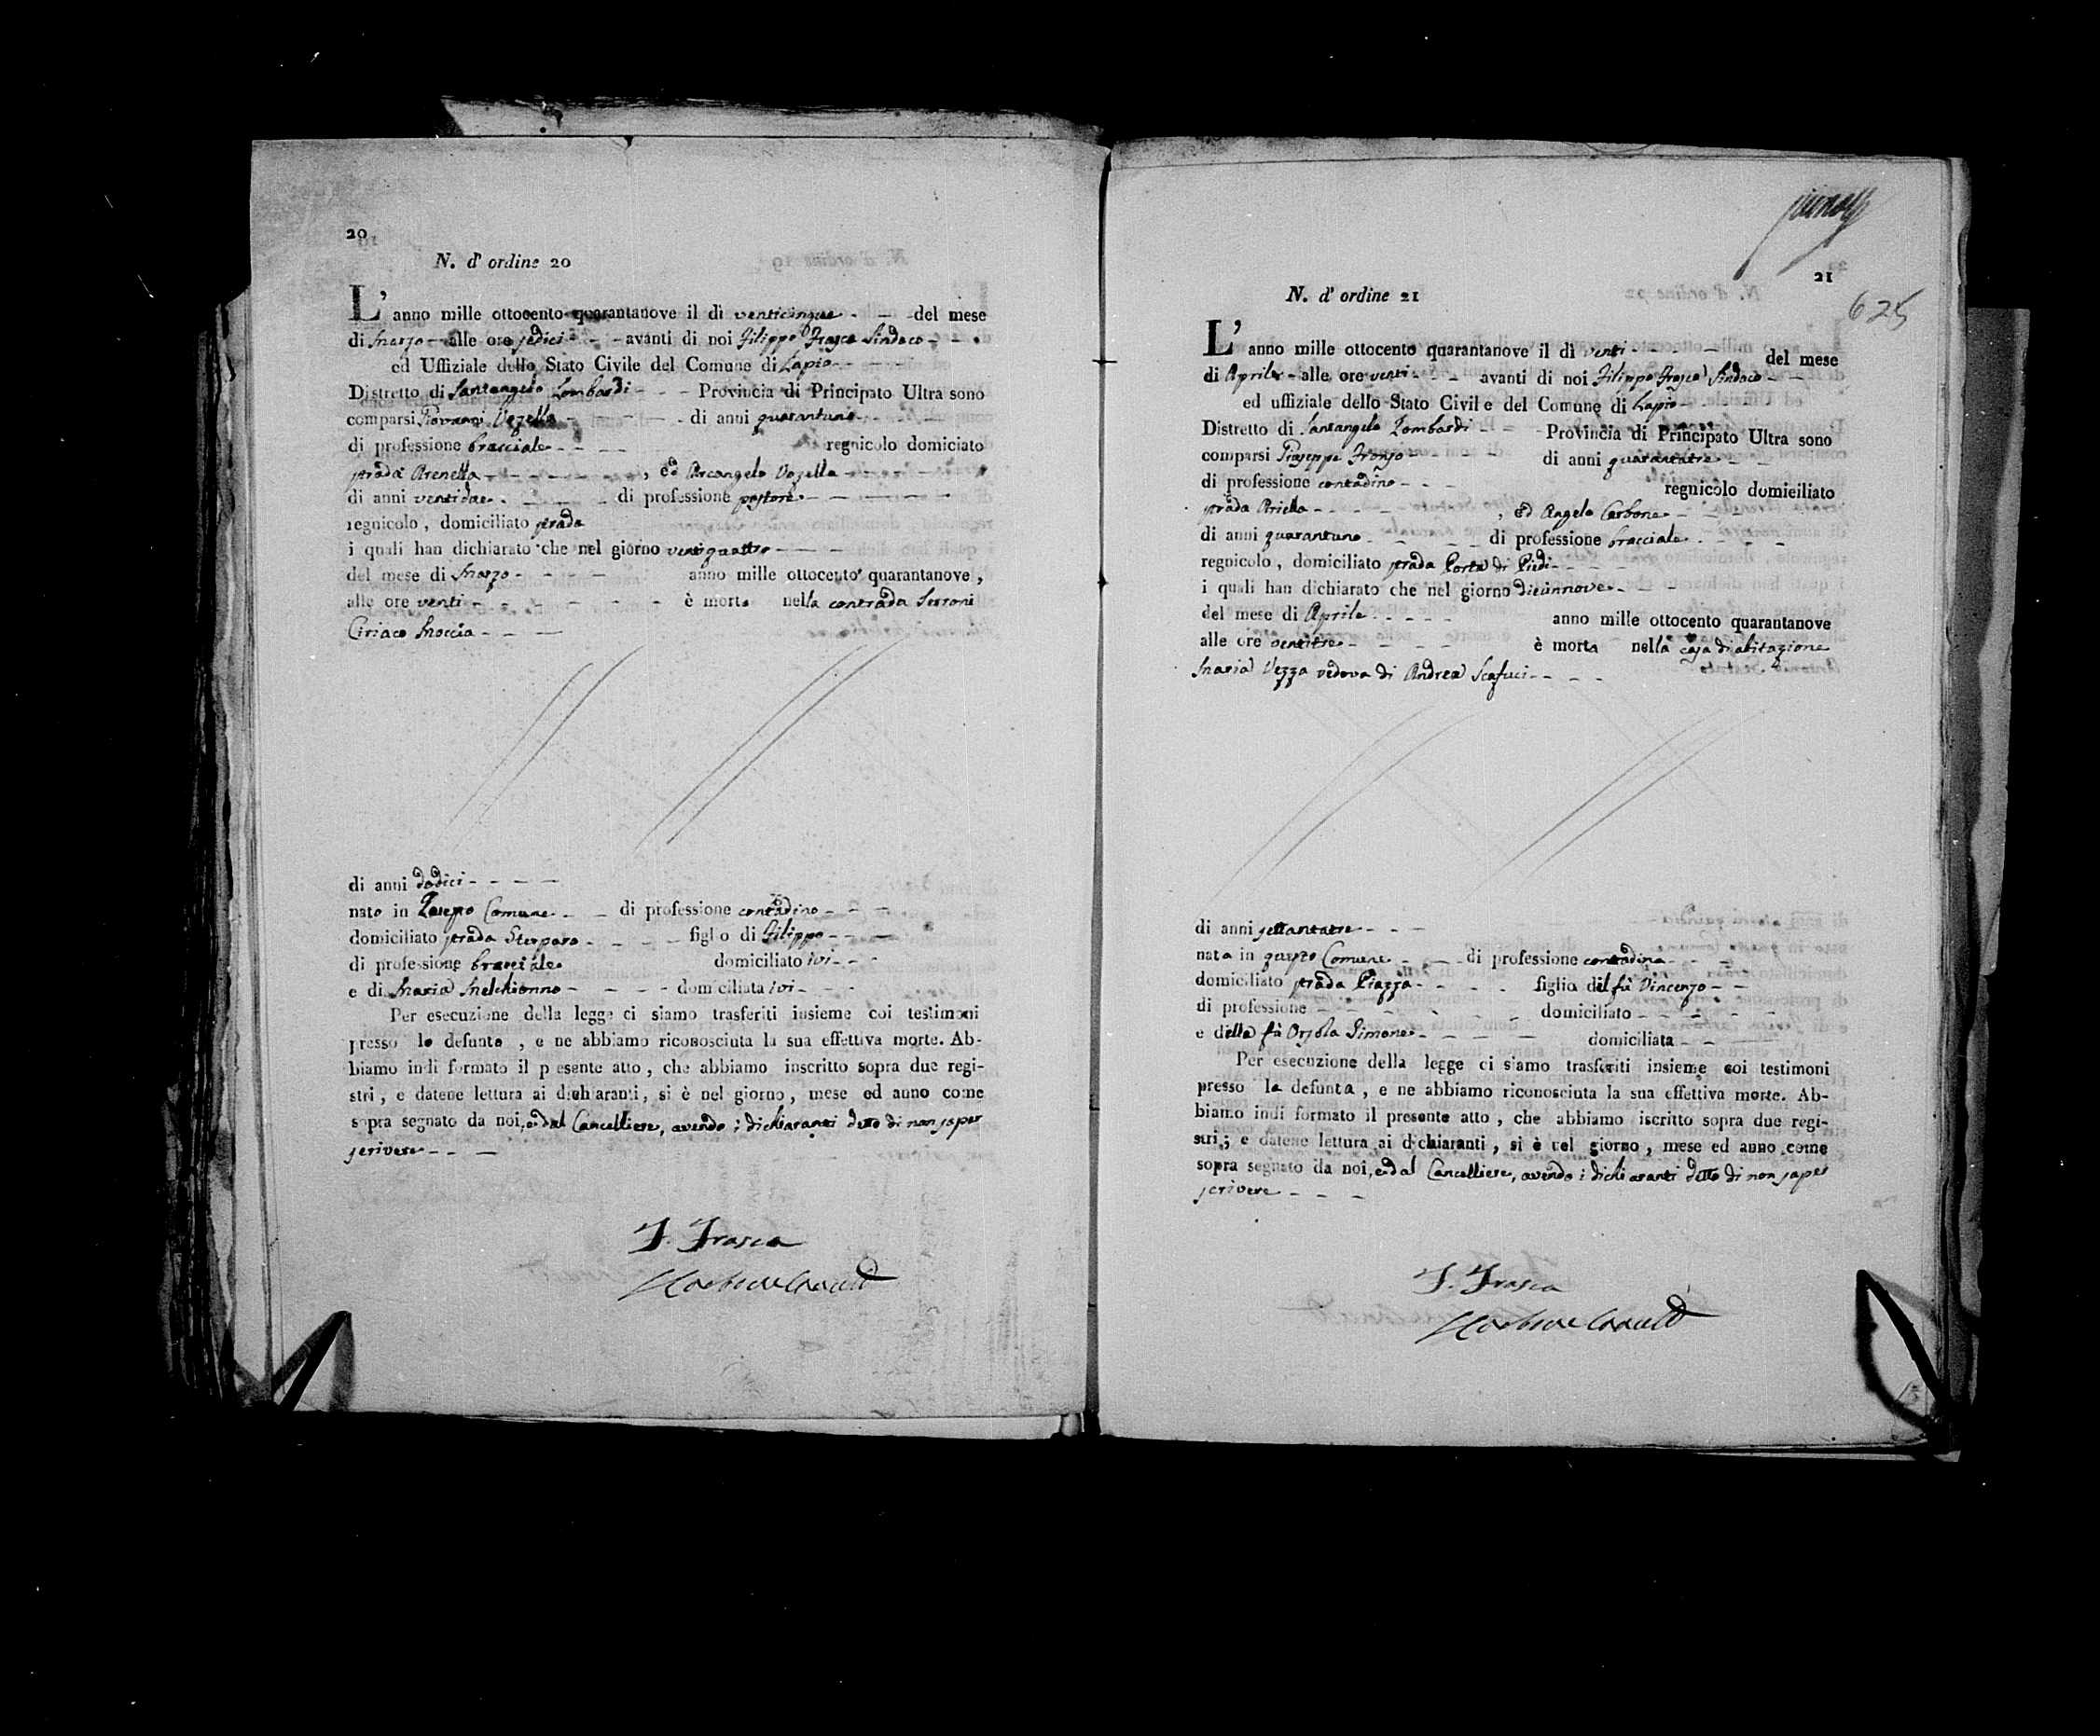 20
N. d' ordine 20
L' anno mille ottocento quarantanove il dì venticinque del mese
di Marzo alle ore sedici avanti di noi Filippo Frasca Sindaco
ed Uffiziale dello Stato Civile del Comune di Lapio
Distretto di Santangelo Lombardi Provincia di Principato Ultra sono
comparsi Giovanni Vozella di anni quarantuno
di professione bracciale regnicolo domiciato
strada Arenella , ed Arcangelo Vozella
di anni ventidue di professione pastore
regnicolo , domiciliato strada
i quali han dichiarato che nel giorno ventiquattro
del mese di Marzo anno mille ottocento quarantanove ,
alle ore venti è morto nella contrada Serroni
Ciriaco Moccia
di anni dodici
nato in questo Comune di professione contadino
domiciliato strada Sterparo figlio di Filippo
di professione bracciale domiciliato ivi
e di Maria Melchionno domiciliata ivi
Per esecuzione della legge ci siamo trasferiti insieme coi testimoni
presso lo defunto , e ne abbiamo riconosciuta la sua effettiva morte. Ab-
biamo indi formato il presente atto , che abbiamo inscritto sopra due regi-
stri , e datene lettura ai dichiaranti, si è nel giorno , mese ed anno come
sopra segnato da noi, e dal Cancelliere, avendo i dichiaranti detto di non saper
scrivere
F. Frasca
21
625
N. d' ordine 21
L' anno mille ottocento quarantanove il dì venti del mese
di Aprile alle ore venti avanti di noi Filippo Frasca Sindaco
ed uffiziale dello Stato Civile del Comune di Lapio
Distretto di Santangelo Lombardi Provincia di Principato Ultra sono
comparsi Giuseppe Fronzo di anni quarantatre
di professione contadino regnicolo domiciliato
strada Ariella , ed Angelo Carbone
di anni quarantuno di professione bracciale
regnicolo , domiciliato strada Porta di Piedi
i quali han dichiarato che nel giorno diciannove
del mese di Aprile anno mille ottocento quarantanove
alle ore ventitre è morta nella casa di abitazione
Maria Vezza vedova di Andrea Scafuci
di anni settantatre
nata in questo Comune di professione contadina
domiciliato strada Piazza figlia del fù Vincenzo
di professione domiciliato
e della fù Orsola Simone domiciliata
Per esecuzione della legge ci siamo trasferiti insieme coi testimoni
presso la defunta , e ne abbiamo riconosciuta la sua effettiva morte. Ab-
biamo indi formato il presente atto , che abbiamo iscritto sopra due regi-
stri ; e datene lettura ai dichiaranti , si è nel giorno , mese ed anno come
sopra segnato da noi, e dal Cancelliere, avendo i dichiaranti detto di non saper
scrivere
F. Frasca